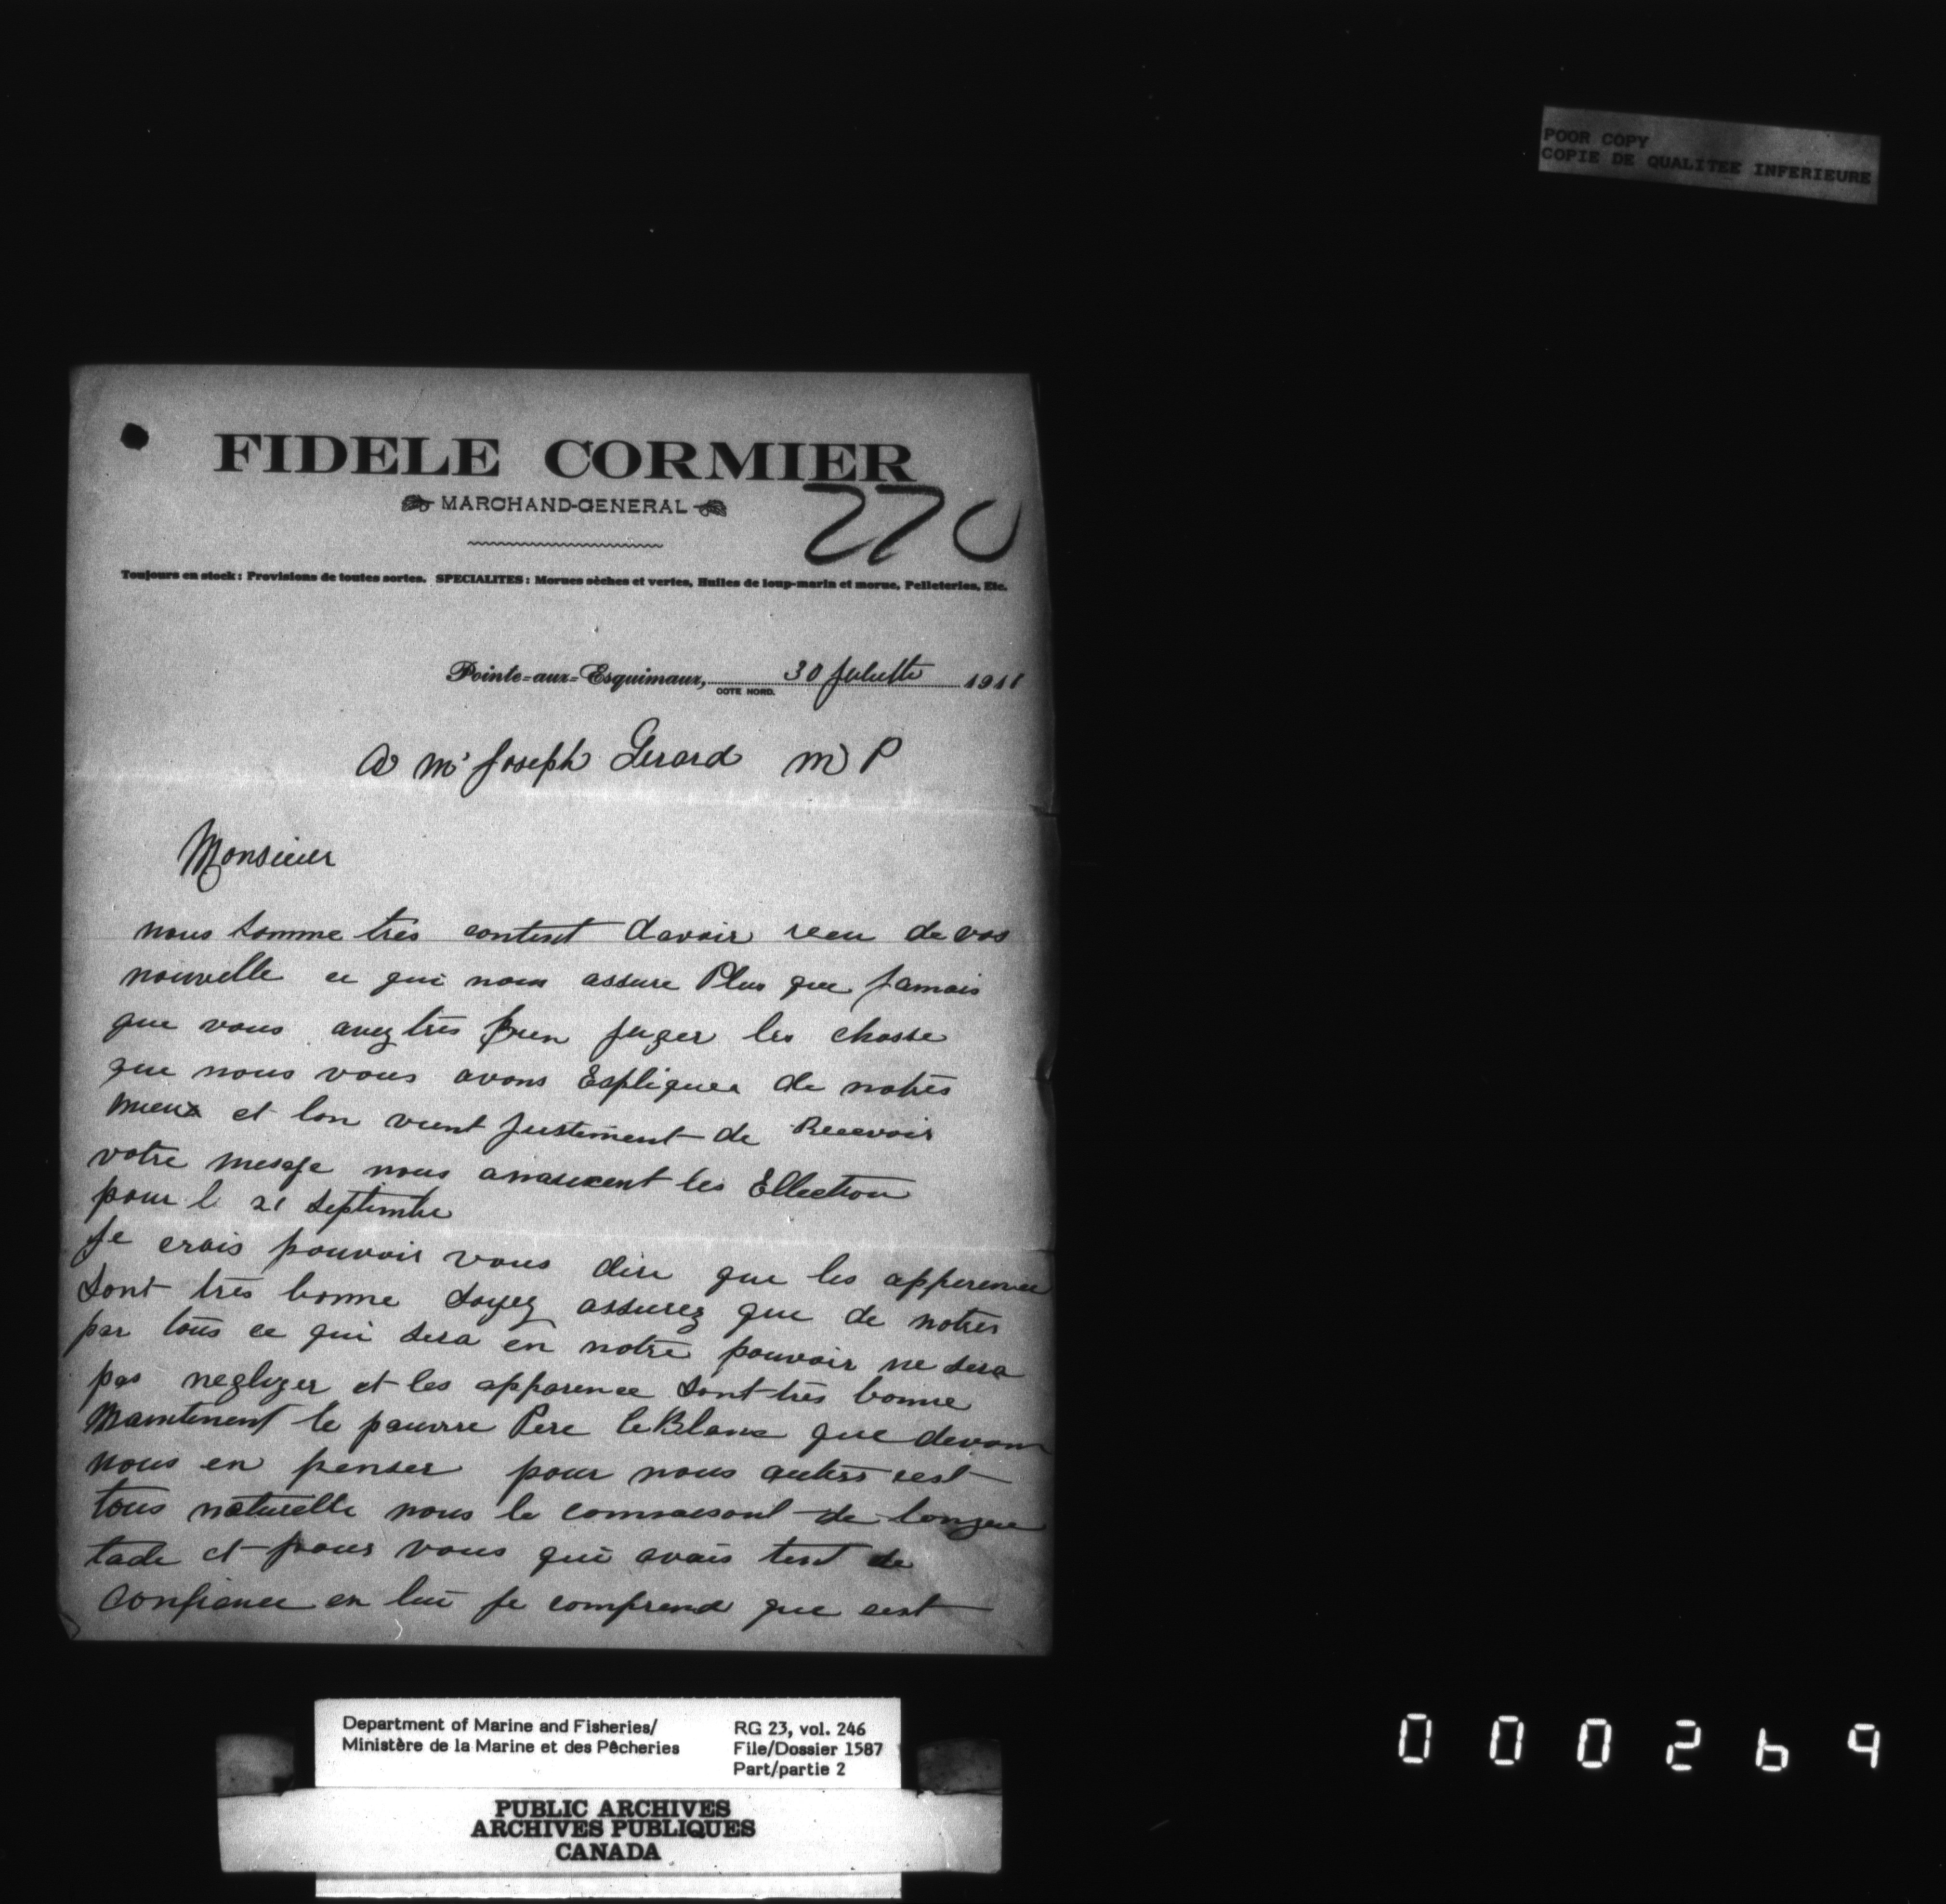 POOR COPY
COPIE DE QUALITEE INFERIEURE
FIDELE CORMIER
MARCHAND-GENERAL
270
Toujours en stock: Provisions de toutes sortes. SPECIALITES: Morues sèches et vertes, Huiles de loup-marin et morue, Pelleteries, Etc.
Pointe-aux-Esquimaux, 30 Juliette 1911
COTE NORD.
A Mr Joseph Gerard M P
Monsieur
nous somme très content davoir recu de vos
nouvelle ce qui nous assure Plus que Jamais
que vous avez très bien juger les chosse
que nous vous avons Expliquer de notres
mieux et lon vient justement de Recevoir
votre mesage nous les Ellection
pour l 21 Septembre
Je crois pouvoir vous dire que les apperence
sont très bonne soyez assurez que de notres
par tous ce qui sera en notre pouvoir ne sera
pas negliger et les apparence sont très bonne
Maintenent le pauvre Pere leBlanc que devons
nous en penser pour nous autres cest
tous naturelle nous le connaisont de longue
tade et pour vous qui avais tent de
Confience en lui je comprend que cest
Department of Marine and Fisheries/
Ministère de la Marine et des Pêcheries
RG 23, vol. 246
File/Dossier 1587
Part/partie 2
PUBLIC ARCHIVES
ARCHIVES PUBLIQUES
CANADA
000269